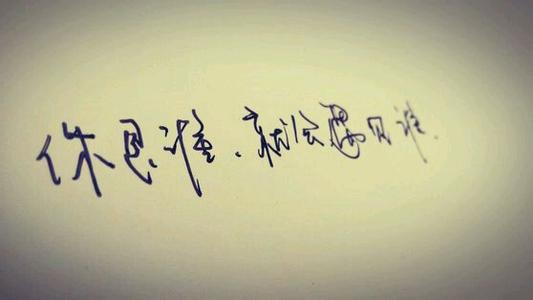 你是谁，就会遇见谁.